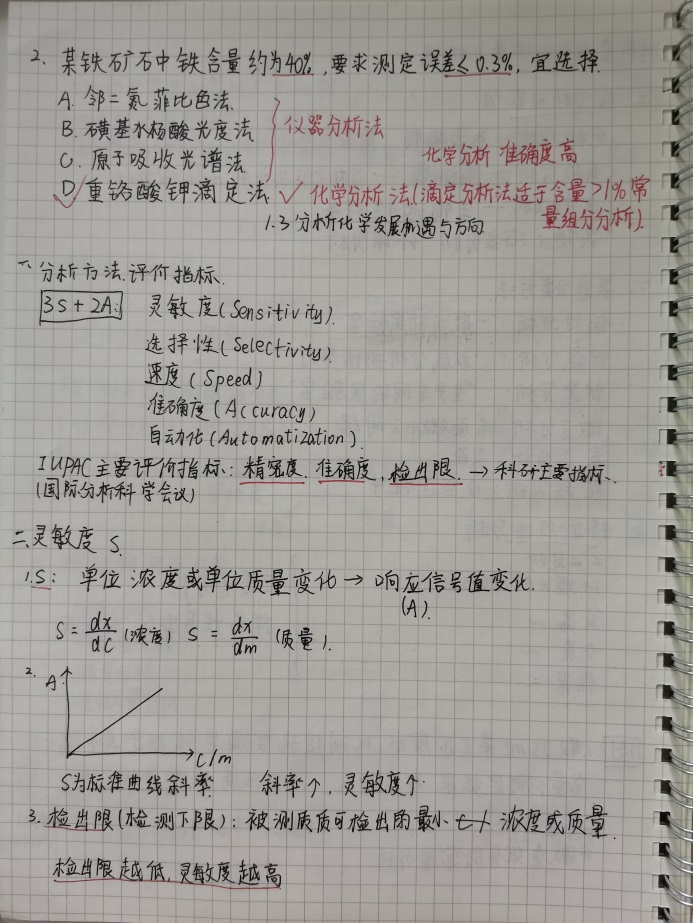 2、某铁矿石中铁含量约为40%,要求测定误差≤0.3%,宜选择.
A. 邻二氮菲比色法.
B. 磺基水杨酸光度法 } 仪器分析法
C. 原子吸收光谱法
化学分析 准确度高
D 重铬酸钾滴定法 ✓ 化学分析法.(滴定分析法适于含量>1%常
量组分分析).
1.3 分析化学发展机遇与方向
一、分析方法评价指标.
3S+2A: 灵敏度(Sensitivity).
选择性(Selectivity)
速度(Speed)
准确度(Accuracy)
自动化(Automatization).
IUPAC主要评价指标:精密度.准确度,检出限.→科研主要指标.
(国际分析科学会议)
二、灵敏度 S.
1.S: 单位浓度或单位质量变化→响应信号值变化.
(A).
S = dx/dc (浓度) S = dx/dm (质量).
2. A↑
c/m
S为标准曲线斜率 斜率↑,灵敏度↑.
3.检出限(检测下限):被测质质可检出的最小 浓度或质量.
检出限越低,灵敏度越高